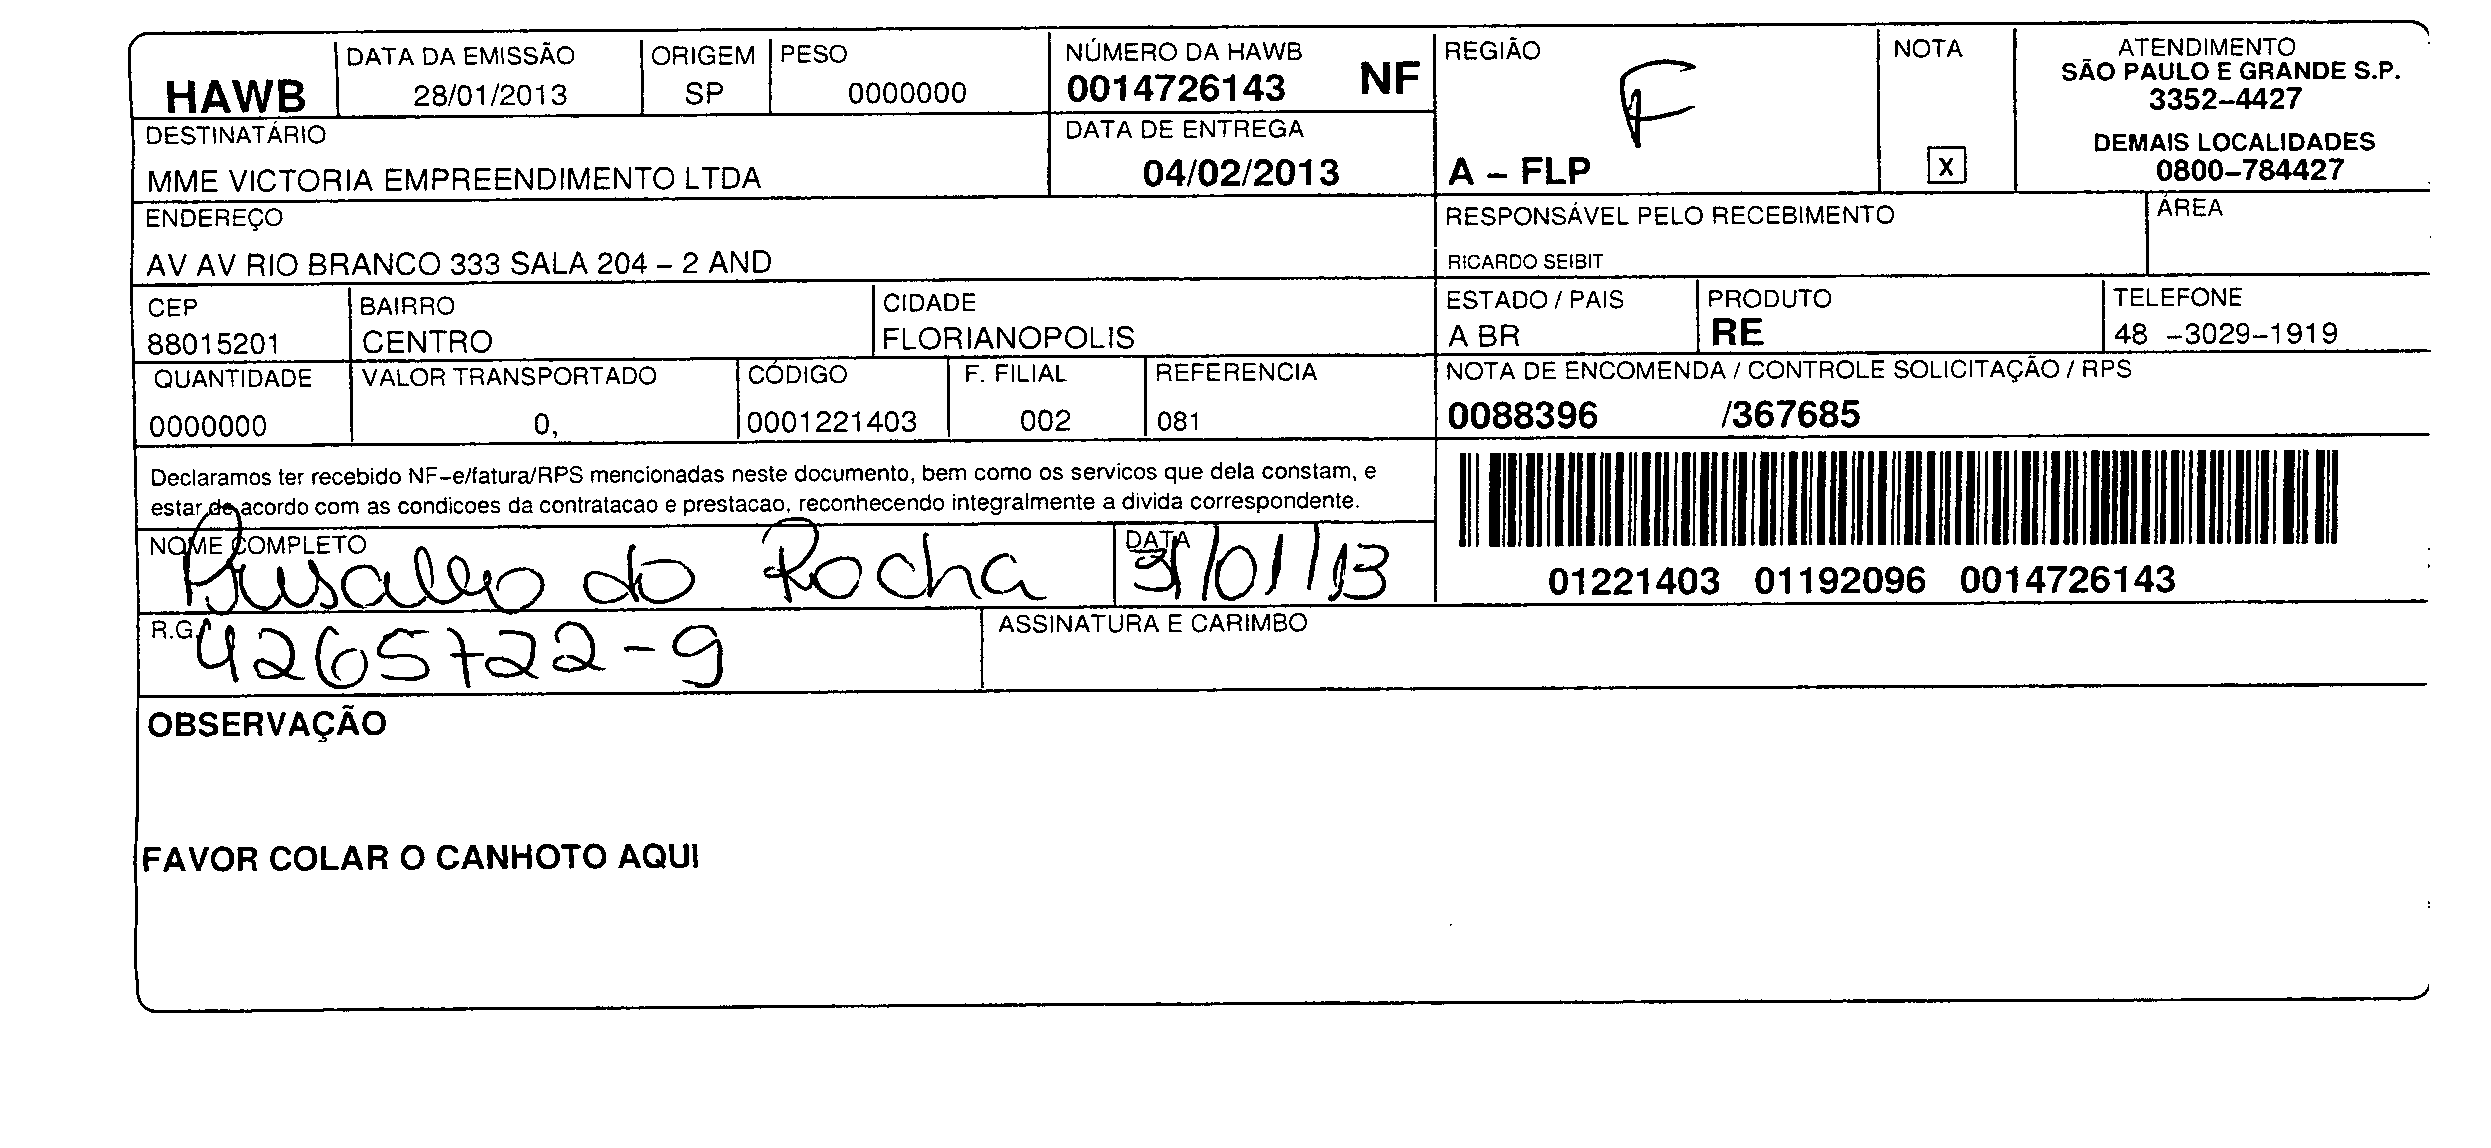 HAWB
DATA DA EMISSÃO
28/01/2013
ORIGEM
SP
PESO
0000000
NÚMERO DA HAWB
0014726143 NF
REGIÃO
F
A – FLP
NOTA
X
ATENDIMENTO
SÃO PAULO E GRANDE S.P.
3352–4427
DEMAIS LOCALIDADES
0800–784427
DESTINATÁRIO
MME VICTORIA EMPREENDIMENTO LTDA
DATA DE ENTREGA
04/02/2013
ENDEREÇO
AV AV RIO BRANCO 333 SALA 204 – 2 AND
RESPONSÁVEL PELO RECEBIMENTO
RICARDO SEIBIT
ÁREA
CEP
88015201
BAIRRO
CENTRO
CIDADE
FLORIANOPOLIS
ESTADO / PAIS
A BR
PRODUTO
RE
TELEFONE
48 –3029–1919
QUANTIDADE
0000000
VALOR TRANSPORTADO
0,
CÓDIGO
0001221403
F. FILIAL
002
REFERENCIA
081
NOTA DE ENCOMENDA / CONTROLE SOLICITAÇÃO / RPS
0088396 /367685
Declaramos ter recebido NF–e/fatura/RPS mencionadas neste documento, bem como os servicos que dela constam, e
estar de acordo com as condicoes da contratacao e prestacao, reconhecendo integralmente a divida correspondente.
01221403 01192096 0014726143
NOME COMPLETO
do Rocha
DATA
31/01/13
R.G.
4265722-9
ASSINATURA E CARIMBO
OBSERVAÇÃO
FAVOR COLAR O CANHOTO AQUI